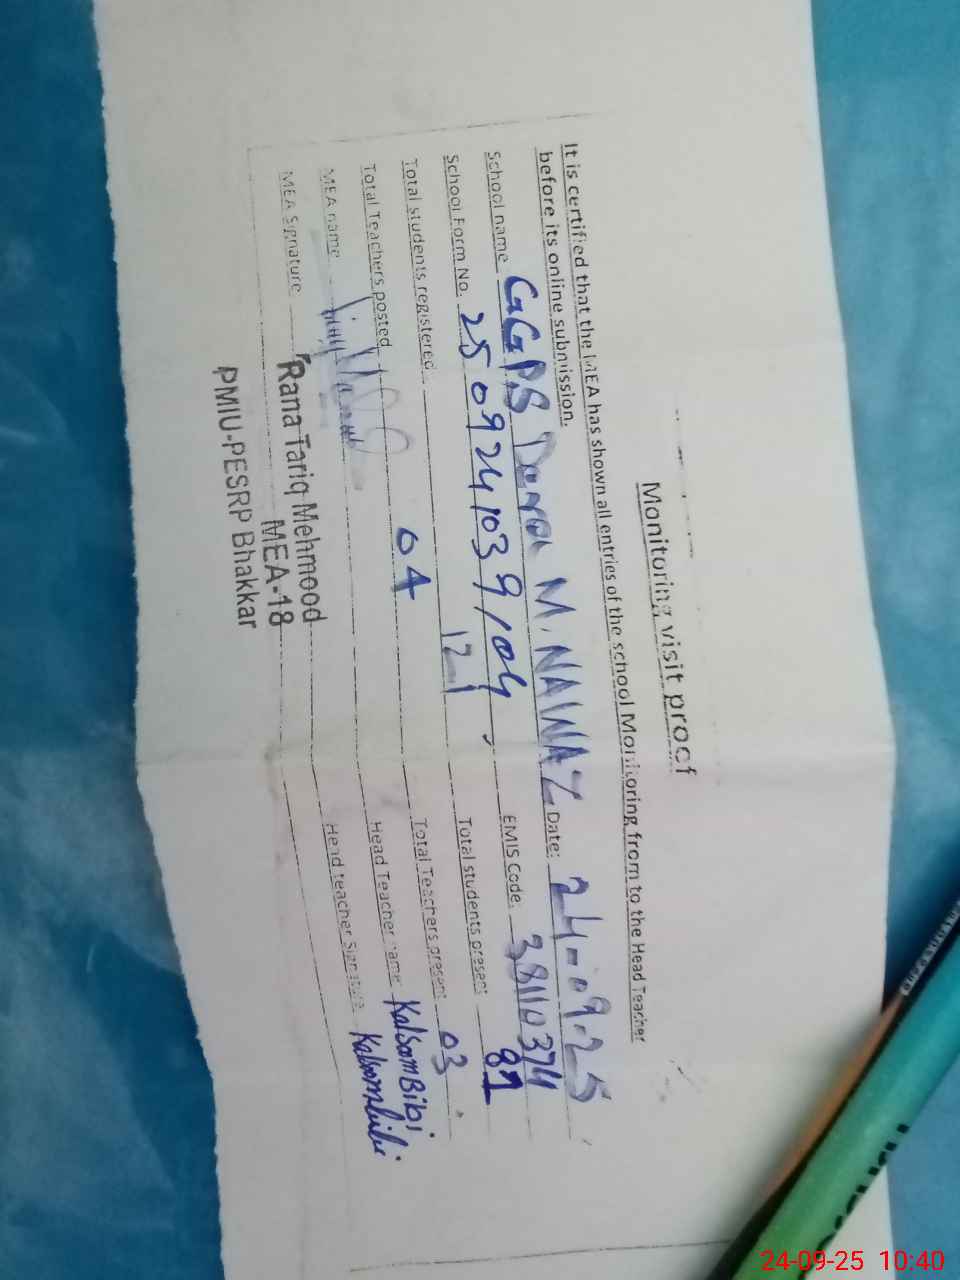 Monitoring visit proof
It is certified that the MEA has shown all entries of the school Monitoring from to the Head Teacher
before its online submission.
School name GGPS M. NAWAZ Date: 24-09-25
School Form No. 2509241039/04 EMIS Code: 38110374
Total students registered 121 Total students present 81
Total Teachers posted 04 Total Teachers present 03
MEA name Head Teacher name Kalsom Bibi
MEA Signature Head teacher Signature Kalsombibi
Rana Tariq Mehmood
MEA-18
PMIU-PESRP Bhakkar
24-09-25 10:40